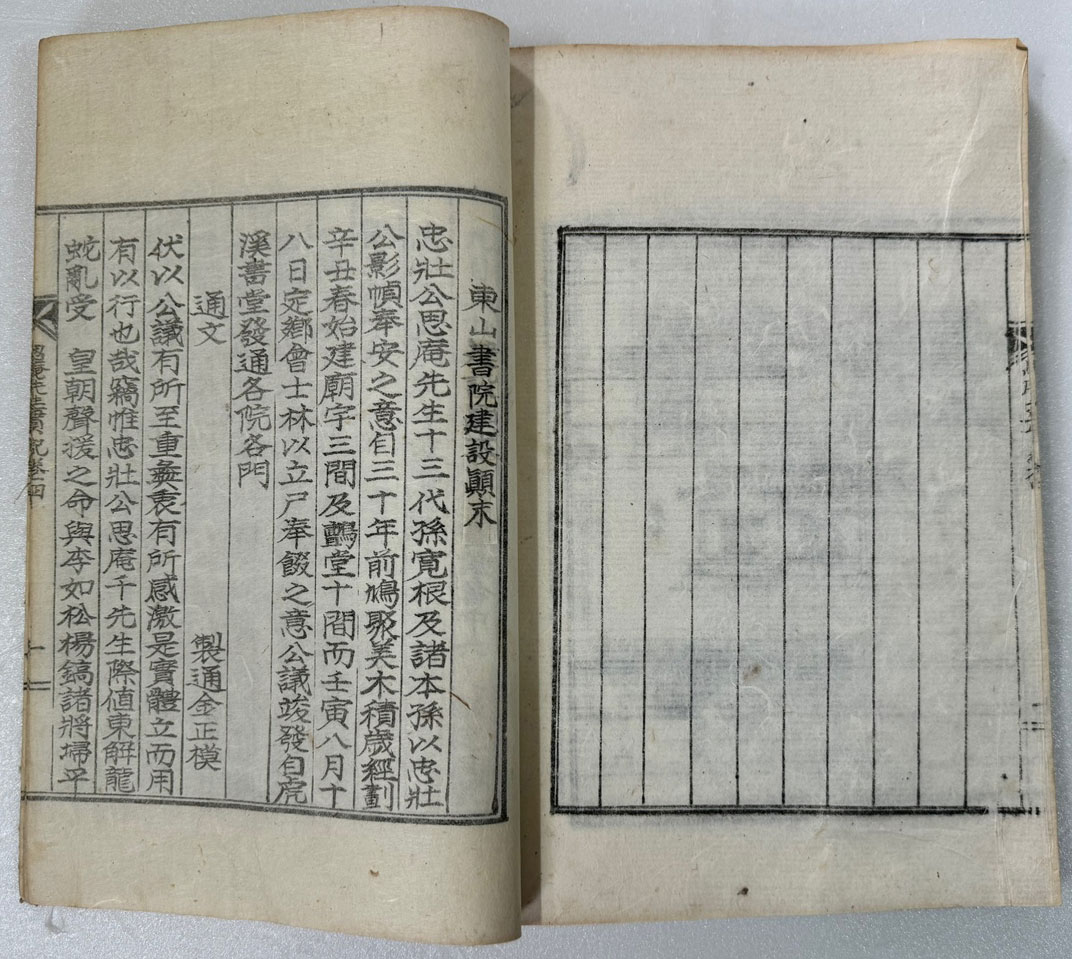 東山書院建設顚末
忠壯公思庵先生十三代孫寬根及諸本孫以忠壯
公影幀奉安之意自三十年前鳩聚美木積歲經劃
辛丑春始建廟宇三間及講堂十間而壬寅八月十
八日定鄕會士林以立尸奉餟之意公議竣發自虎
溪書堂發通各院各門
通文 製通金正模
伏以公議有所至重彜衷有所感激是實體立而用
有以行也哉竊惟忠壯公思庵千先生際値東觧龍
蛇亂受 皇朝聲援之命與李如松楊鎬諸將埽平
思庵先生實記卷之四